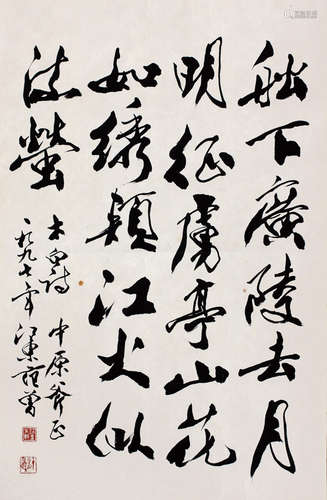 舩下廣陵去月
明征虜亭山花
如綉頰江火似
流螢
李白詩 中原斧正
一九九七年 江東范曾